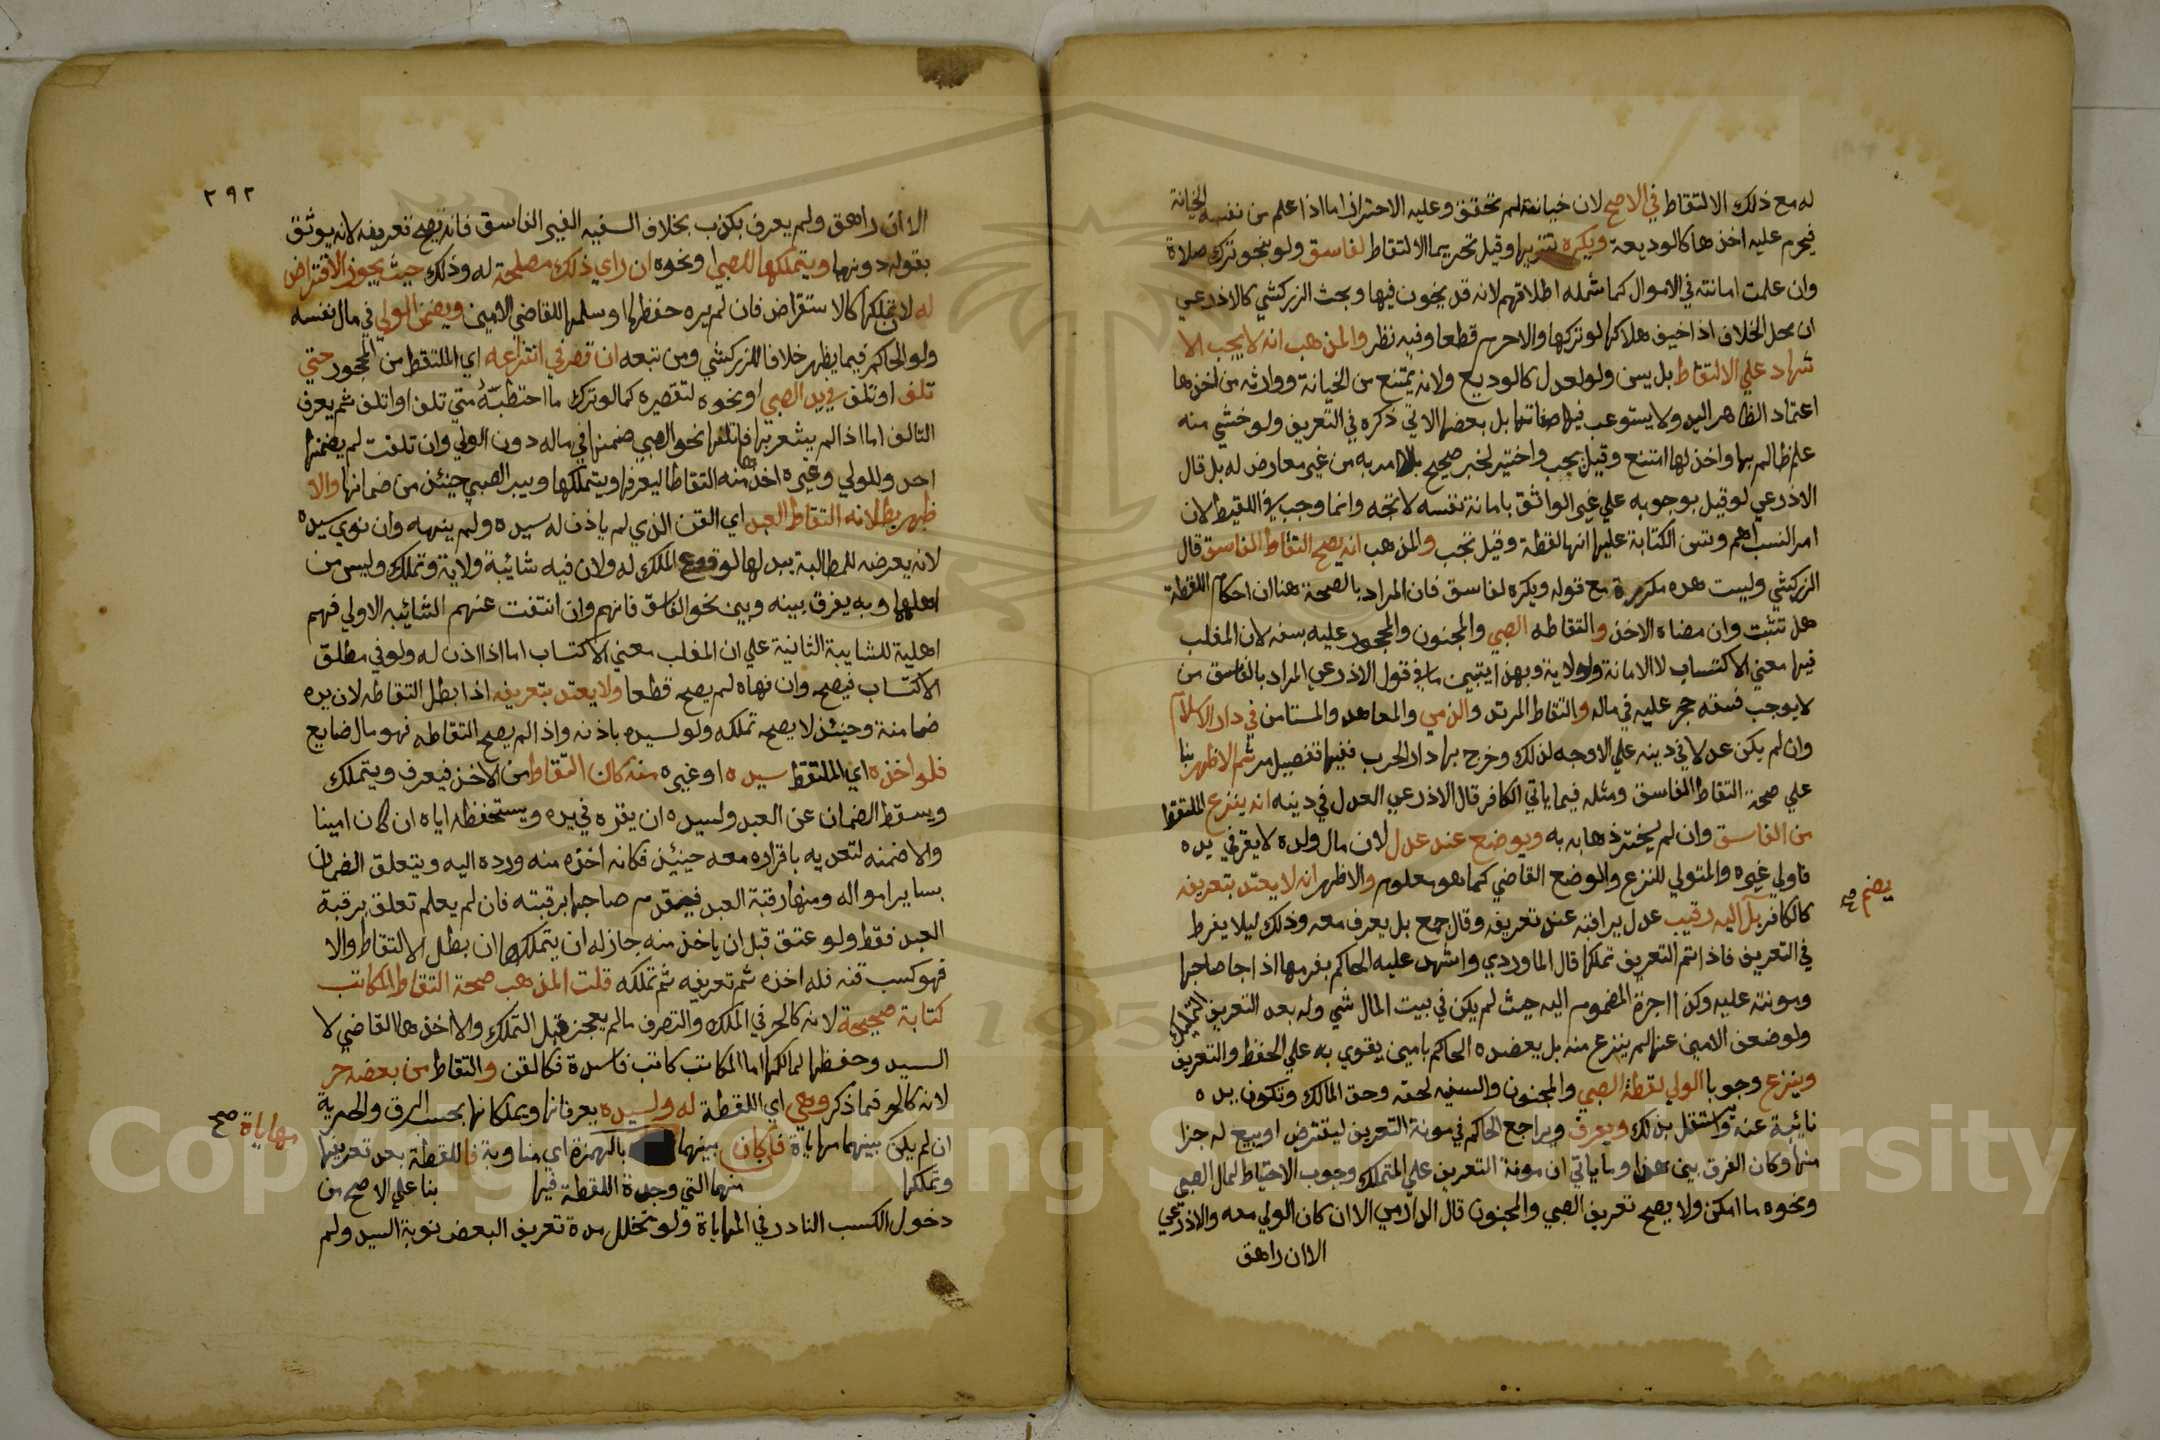 له مع ذلك الالتقاط في الاصح لان خيانته لم تتحقق وعليه الاحتراز اما اذا علم من نفسه الخيانة
فيحرم عليه اخذها كالوديعة ويكره تنزيها وقيل تحريما الالتقاط لفاسق ولو بنحو ترك صلاة
وان علمت امانته في الاموال كما شمله اطلاقهم لانه قد يخون فيها وبحث الزركشي كالاذرعي
ان محل الخلاف اذا خيف هلاكها لو تركها والا حرم قطعا وفيه نظر والمذهب انه لا يجب الا
شهاد علي الالتقاط بل يسن ولو لعدل كالوديع ولانه يمتنع من الخيانة ووارثه من اخذها
اعتماد الظاهر اليد ولا يستوعب فيها صفاتها بل بعضها الاتي ذكره في التعريف ولو خشي منه
علم ظالم بها واخذه لها امتنع وقيل يجب واختير لخبر صحيح بالامر به من غير معارض له بل قال
الاذرعي لو قيل بوجوبه علي غير الواثق بامانة نفسه لاتجه وانما وجب في اللقيط لان
امر النسب اهم وتسن الكتابة عليها انها لقطة وقيل تجب والمذهب انه يصح التقاط الفاسق قال
الزركشي وليست هذه مكررة مع قوله ويكره لفاسق فان المراد بالصحة هنا ان احكام اللقطة
هل تثبت وان منعناه الاخذ والتقاطه الصبي والمجنون والمحجور عليه بسفه لان المغلب
فيها معني الاكتساب لا الامانة والولاية وبهذا يتبين ما في قول الاذرعي المراد بالفاسق من
لا يوجب فسقه حجر عليه في ماله والتقاط المرتد والذمي والمعاهد والمستامن في دار الاسلام
وان لم يكن عدلا في دينه علي الاوجه لذلك وخرج بها دار الحرب ففيها تفصيل مر ثم الاظهر بنا
علي صحة التقاط الفاسق ومثله فيما ياتي الكافر قال الاذرعي العدل في دينه انه ينزع الملتقط
من الفاسق وان لم يخش ذهابه به ويوضع عند عدل لان مال ولده لا يقر في يده
فاولي غيره والمتولي للنزع والوضع القاضي كما هو معلوم والاظهر انه لا يعتد بتعريفه
يضم صح
كالكافر بل اليه رقيب عدل يراقبه عند تعريفه وقال جمع بل يعرف معه وذلك ليلا يفرط
في التعريف فاذا تم التعريف تملكها قال الماوردي واشهد عليه الحاكم بغرمها اذا جا صاحبها
ومونته عليه وكذا اجرة المضموم اليه حيث لم يكن في بيت المال شي وله بعد التعريف التمليك
ولو ضعف الامين عنها لم ينزع منه بل يعضده الحاكم بامين يقوي به علي الحفظ والتعريف
وينزع وجوبا الولي لقطة الصبي والمجنون والسفيه لحقه وحق المالك وتكون يده
نائبة عنه ويستقل بذلك ويعرف ويراجع الحاكم في مونة التعريف ليقترض او يبيع له جزا
منها وكان الفرق بين هذا وما ياتي ان مونة التعريف علي المتملك وجوب الاحتياط لمال الصبي
ونحوه ما امكن ولا يصح تعريف الصبي والمجنون قال الدارمي الا ان كان الولي معه والاذرعي
الا ان راهق
٢٩٢
الا ان راهق ولم يعرف بكذب بخلاف السفيه الغير الفاسق فانه يصح تعريفه لانه يوثق
بقوله دونهما ويتملكها للصبي ونحوه ان راي ذلك مصلحة له وذلك حيث يجوز الاقتراض
له لان تملكها كالاستقراض فان لم يره حفظها او سلمها للقاضي الامين ويضمن الولي في مال نفسه
ولو الحاكم فيما يظهر خلافا للزركشي ومن تبعه ان قصر في انتزاعه اي الملتقط من المحجور حتي
تلف او تلف في يد الصبي او نحوه لتقصيره كما لو ترك ما احتطبه متي تلف او اتلف ثم يعرف
التالف اما اذا لم يشعر بها فاتلفها نحو الصبي ضمنها في ماله دون الولي وان تلفت لم يضمنها
احد وللولي وغيره اخذها منه التقاطا ليعرفها ويتملكها ويبرا الصبي حينئذ من ضمانها والا
ظهر بطلانه التقاط العبد اي القن الذي لم ياذن له سيده ولم ينهه وان نوي سيده
لانه يعرضه للمطالبة ببدلها لوقوع الملك له ولان فيه شائبة ولاية وتملك وليس من
اهلها وبه يفرق بينه وبين نحو الفاسق فانهم وان انتفت عنهم الشائبه الاولي فهم
اهلية للشايبة الثانية علي ان المغلب معني الاكتساب اما اذا اذن له ولو في مطلق
الاكتساب فيصح وان نهاه لم يصح قطعا ولا يعتد بتعريفه اذا بطل التقاطه لان يده
ضامنة وحينئذ لا يصح تملكه ولو لسيده باذنه واذا لم يصح التقاطه فهو مال ضايع
فلو اخذه اي الملتقط سيده او غيره منه كان التقاطا من الاخذ فيعرف ويتملك
ويسقط الضمان عن العبد ولسيده ان يقره في يده ويستحفظه اياه ان كان امينا
والا ضمنه لتعديه باقراره معه حينئذ فكانه اخذه منه ورده اليه ويتعلق الضمان
بسايراموااله ومنها رقبة العبد فيقدم صاحبها برقبته فان لم يعلم تعلق برقبة
العبد فقط ولو عتق قبل ان ياخذ منه جاز له ان يتملكها ان بطل الالتقاط والا
فهو كسب قنه فله اخذه ثم تعريفه ثم تملكه قلت المذهب صحة التقاط المكاتب
كتابة صحيحة لانه كالحر في الملك والتصرف ما لم يعجز قبل التملك والا اخذها القاضي لا
السيد وحفظها لمالكها اما المكاتب كاتب فاسدة فكالقن والتقاط من بعضه حر
لانه كالحر فيما ذكر وهي اي اللقطة له ولسيده يعرفانها ويتملكانها بحسب الرق والحرية
ان لم يكن بينهما مهاياة فان كان بينهما بالهمزة اي مناوبة فاللقطة بعد تعريفها
مهاياة صح
وتملكها منهما التي وجدة اللقطة فيها بنا علي الاصح من
دخول الكسب النادر في المهاباة ولو تخلل مدة تعريف المبعض نوبة السيد ولم